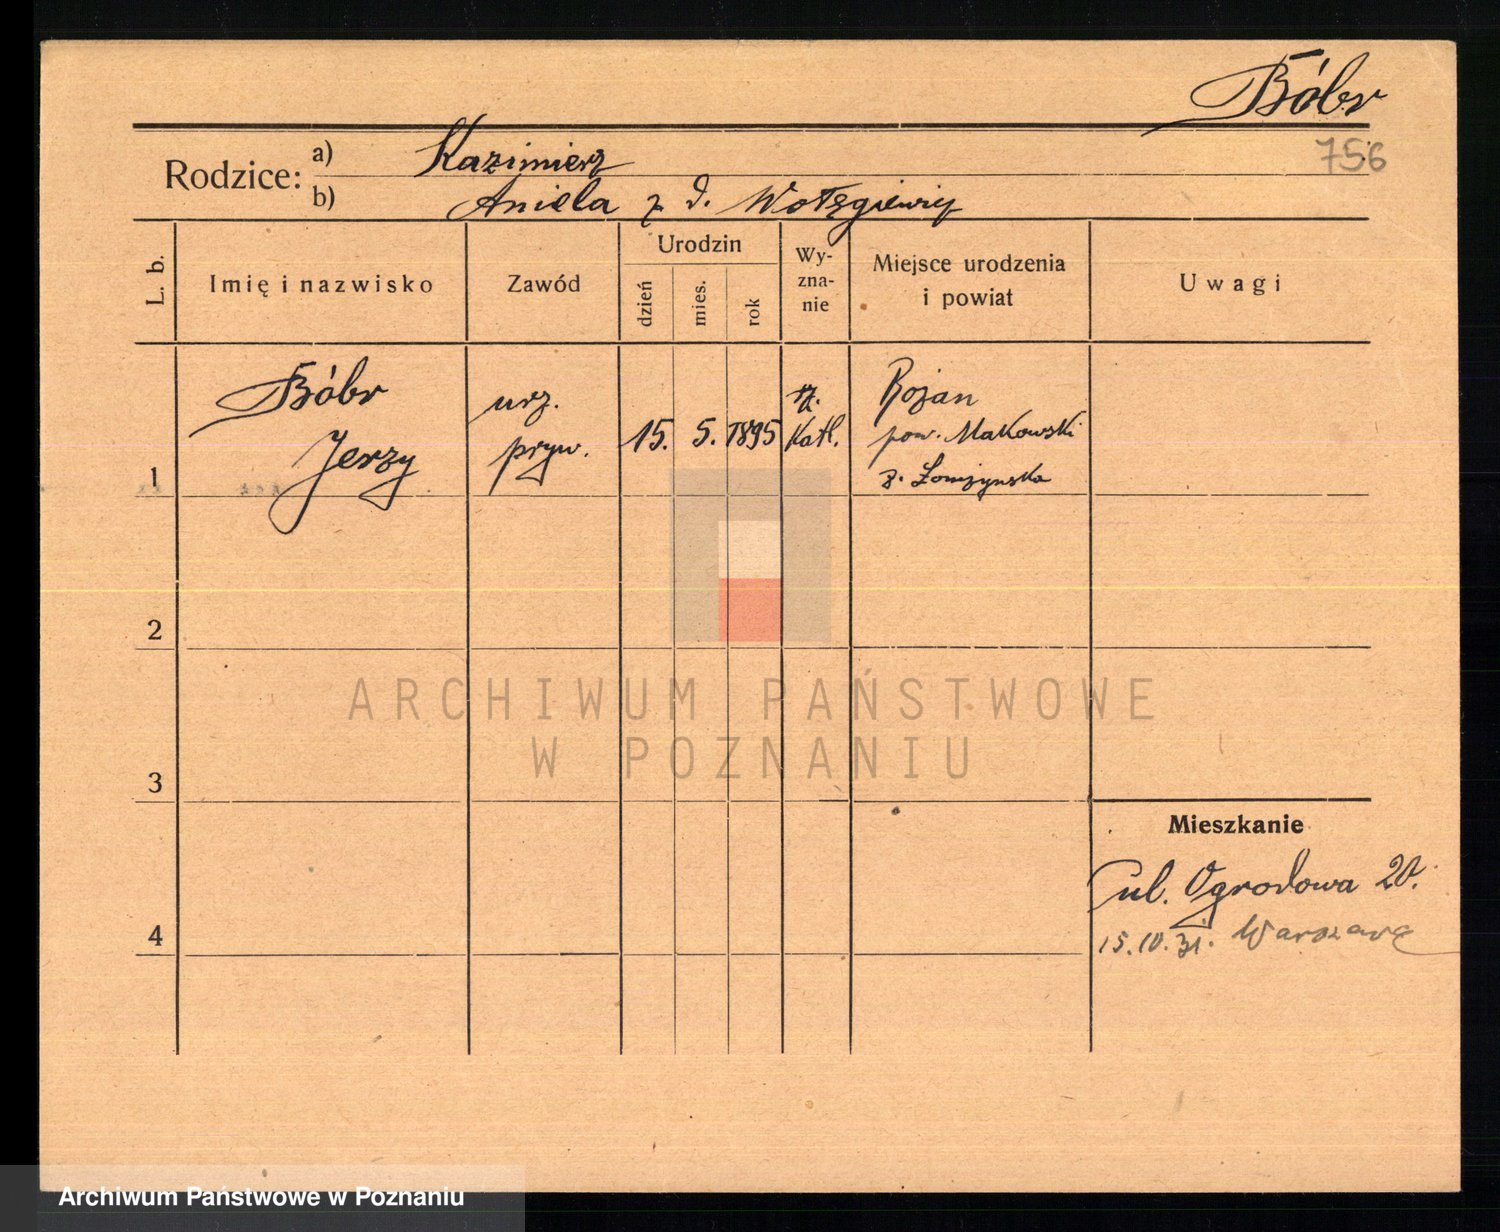 Bóbr
756
Rodzice: a) Kazimierz
b) Aniela z d. Wołęgiewicz
L. b.
Imię i nazwisko
Zawód
Urodzin
dzień
mies.
rok
Wy-
zna-
nie
Miejsce urodzenia
i powiat
Uwagi
1
Bóbr
Jerzy
urz.
pryw.
15. 5. 1895
rz.
Katl.
Rozan
pow. Makowski
z. Łomżynska
2
3
4
Mieszkanie
ul. Ogrodowa 20.
15.10.31. Warszawa
ARCHIWUM PAŃSTWOWE
W POZNANIU
Archiwum Państwowe w Poznaniu